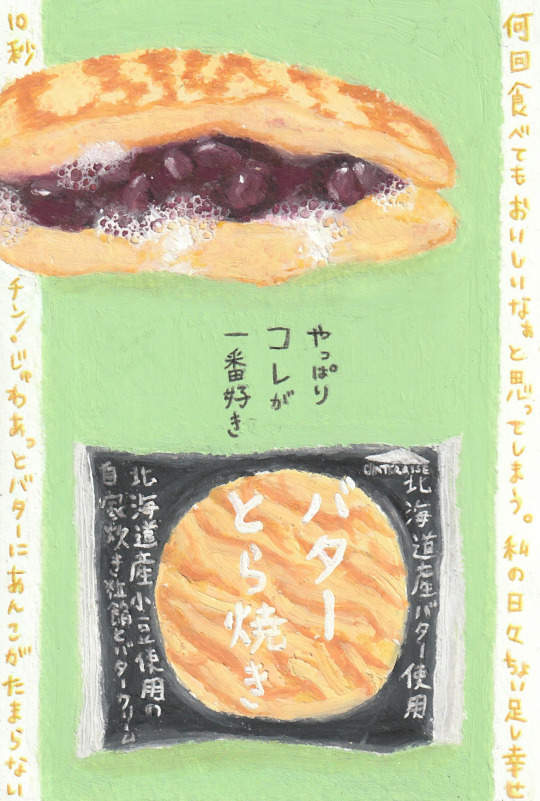 何回食べてもおいしいなぁと思ってしまう。私の日々ちょい足し幸せ
10秒
チン・じゅわあっとバターにあんこがたまらない
やっぱり
コレが
一番好き
北海道産バター使用
バター
とら焼き
北海道産小豆使用の
自家炊き粒餡とバタークリーム